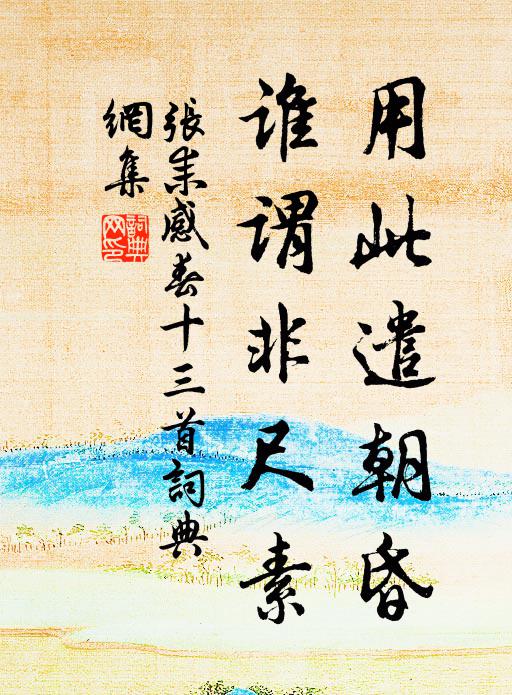 用此遣朝昏
誰謂非尺素
張耒感春十三首詞典
網集
詞典
网印